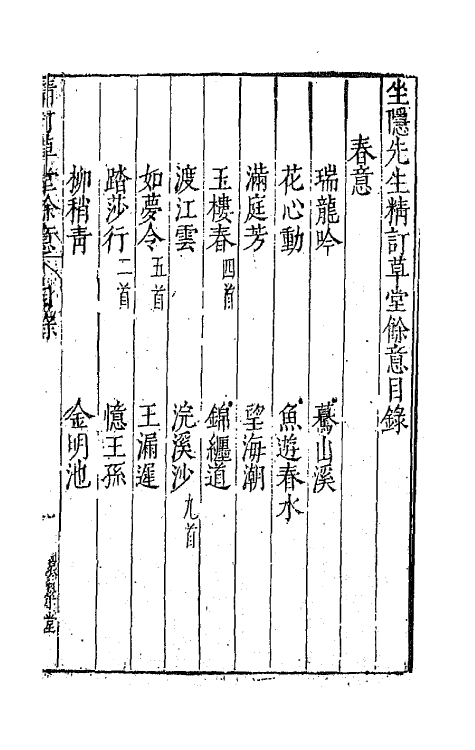 坐隱先生精訂草堂餘意目錄
春意
瑞龍吟　驀山溪
花心動　魚遊春水
滿庭芳　望海潮
玉樓春四首　錦纏道
渡江雲　浣溪沙九首
如夢令五首　王漏遲
踏莎行二首　憶王孫
柳稍青　金明池
精訂草堂餘意　目錄
一